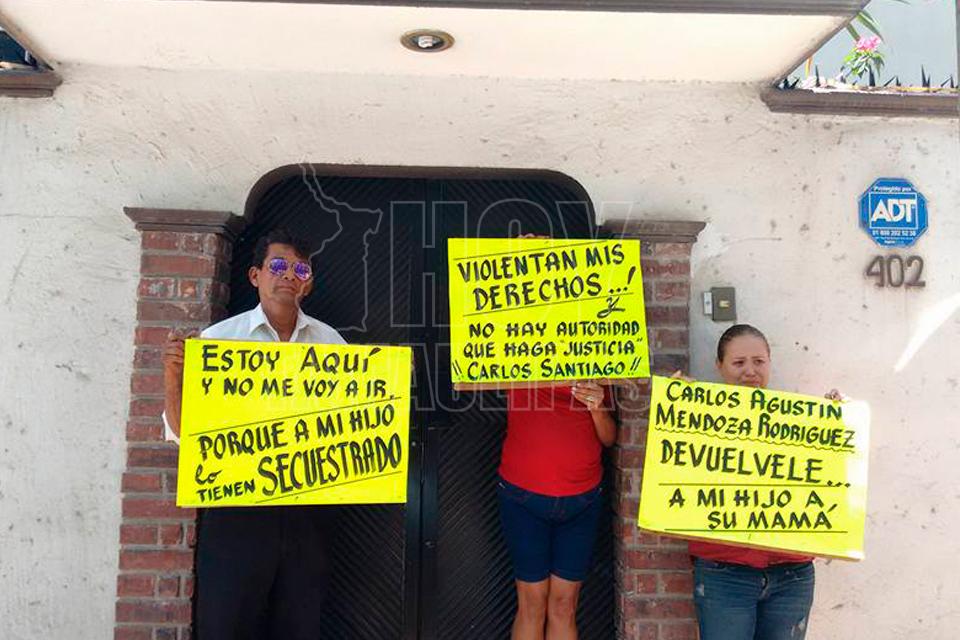 ESTOY AQUÍ
Y NO ME VOY A IR.
PORQUE A MI HIJO
lo
TIENEN SECUESTRADO
VIOLENTAN MIS
DERECHOS...!
Y
NO HAY AUTORIDAD
QUE HAGA "JUSTICIA"
¡¡ CARLOS SANTIAGO !!
CARLOS AGUSTIN
MENDOZA RODRIGUEZ
DEVUELVELE...
A MI HIJO A
SU MAMÁ
Protegido por
ADT
01 800 202 52 38
402
HOY
TAMAULIPAS